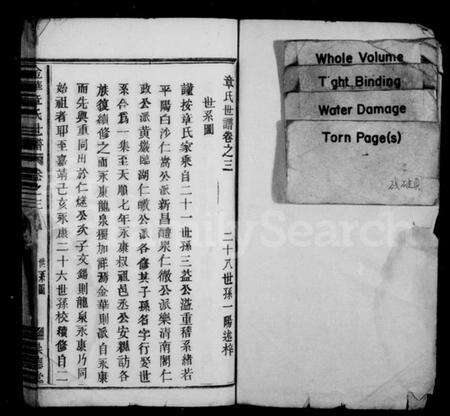 章氏世譜卷之三
二十八世孫一陽述梓
世系圖
謹按章氏家乘自二十一世孫三益公溢重稽系緒若
平陽白沙仁嵩公派新昌醴泉仁徹公派樂清南閣仁
政公派黃巖臨湖仁徽公派各修其子孫名字行第世
系合為一集至天順七年永康叔祖邑丞公安親訪各
族復續修之而永康龍泉獨加詳焉金華則派自永康
而先與重同出於仁燧公次子文錫則龍泉永康乃同
始祖者耶至嘉靖己亥永康二十六世孫校續修自二
世系圖
Whole Volume
Tight Binding
Water Damage
Torn Page(s)
FamilySearch